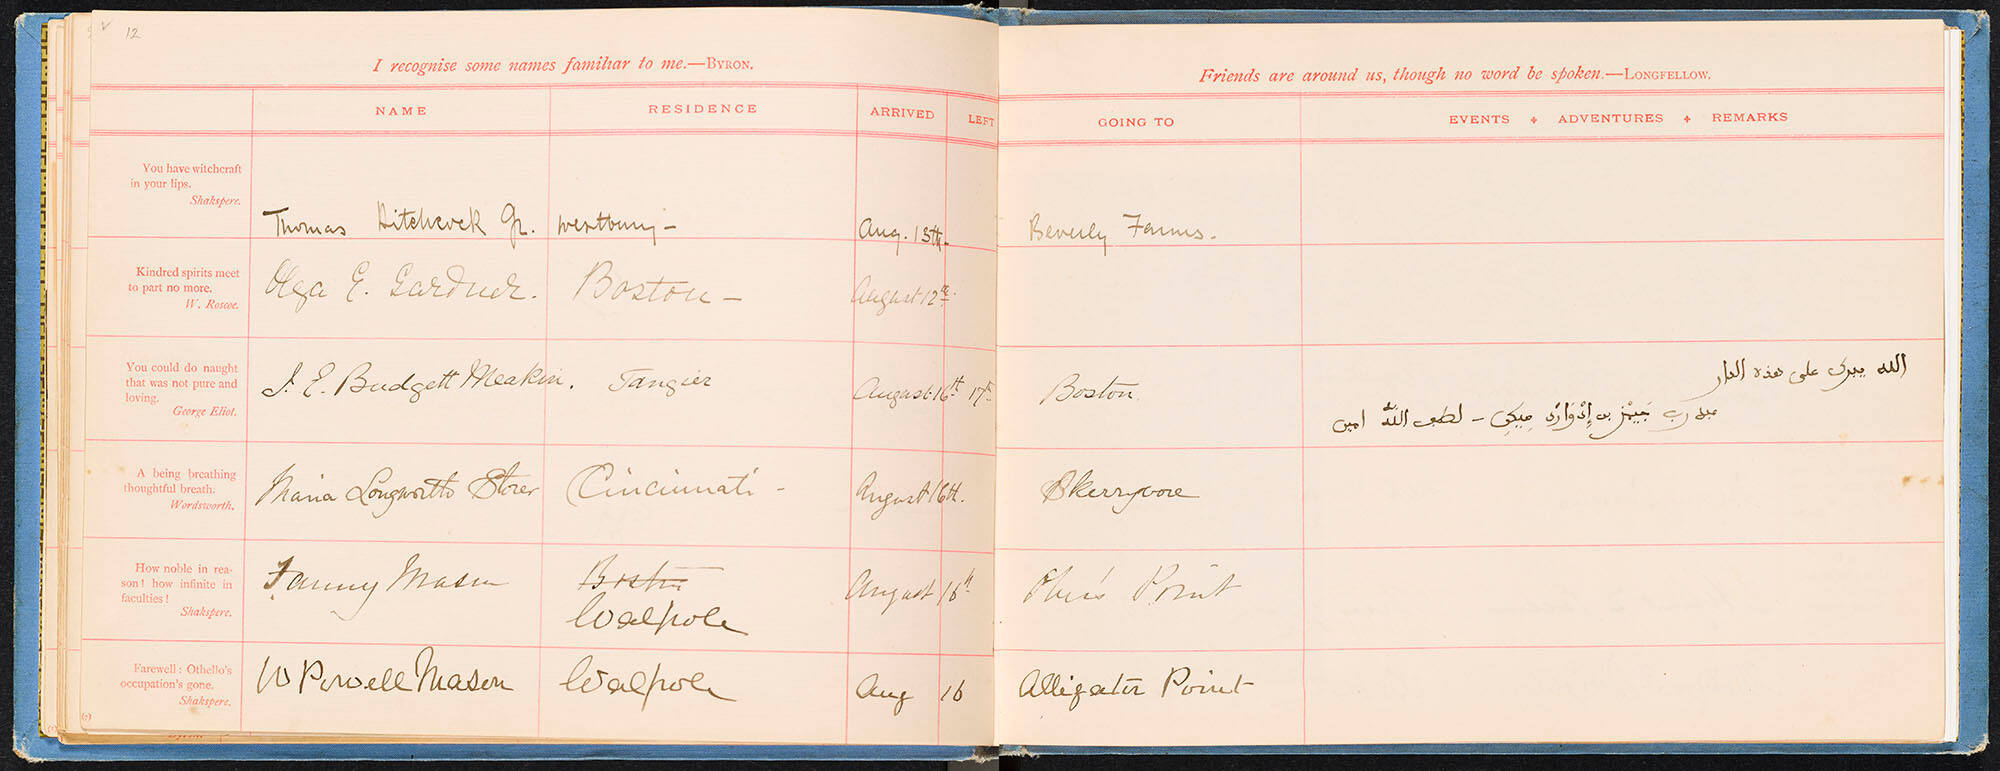 12
I recognise some names familiar to me.—BYRON.
NAME RESIDENCE ARRIVED LEFT
You have witchcraft
in your lips.
Shakspere.
Thomas Hitchcock Jr. Westbury— Aug. 13th.
Kindred spirits meet
to part no more.
W. Roscoe.
Olga E. Gardner. Boston— August 12th.
You could do naught
that was not pure and
loving.
George Eliot.
J. E. Budgett Meakin. Tangier August 16th 17th
A being breathing
thoughtful breath.
Wordsworth.
Maria Longworth Storer Cincinnati - August 16th.
How noble in rea-
son! how infinite in
faculties!
Shakspere.
Fanny Mason Boston August 16th
Walpole
Farewell: Othello's
occupation's gone.
Shakspere.
W Powell Mason Walpole Aug 16
(7)
Friends are around us, though no word be spoken.—LONGFELLOW.
GOING TO EVENTS ✦ ADVENTURES ✦ REMARKS
Beverly Farms.
Boston.
الله يبرك على هذه الدار
جيمز بن إدوارد ميكن - لطف الله امين
Skerryvore
Point
Alligator Point